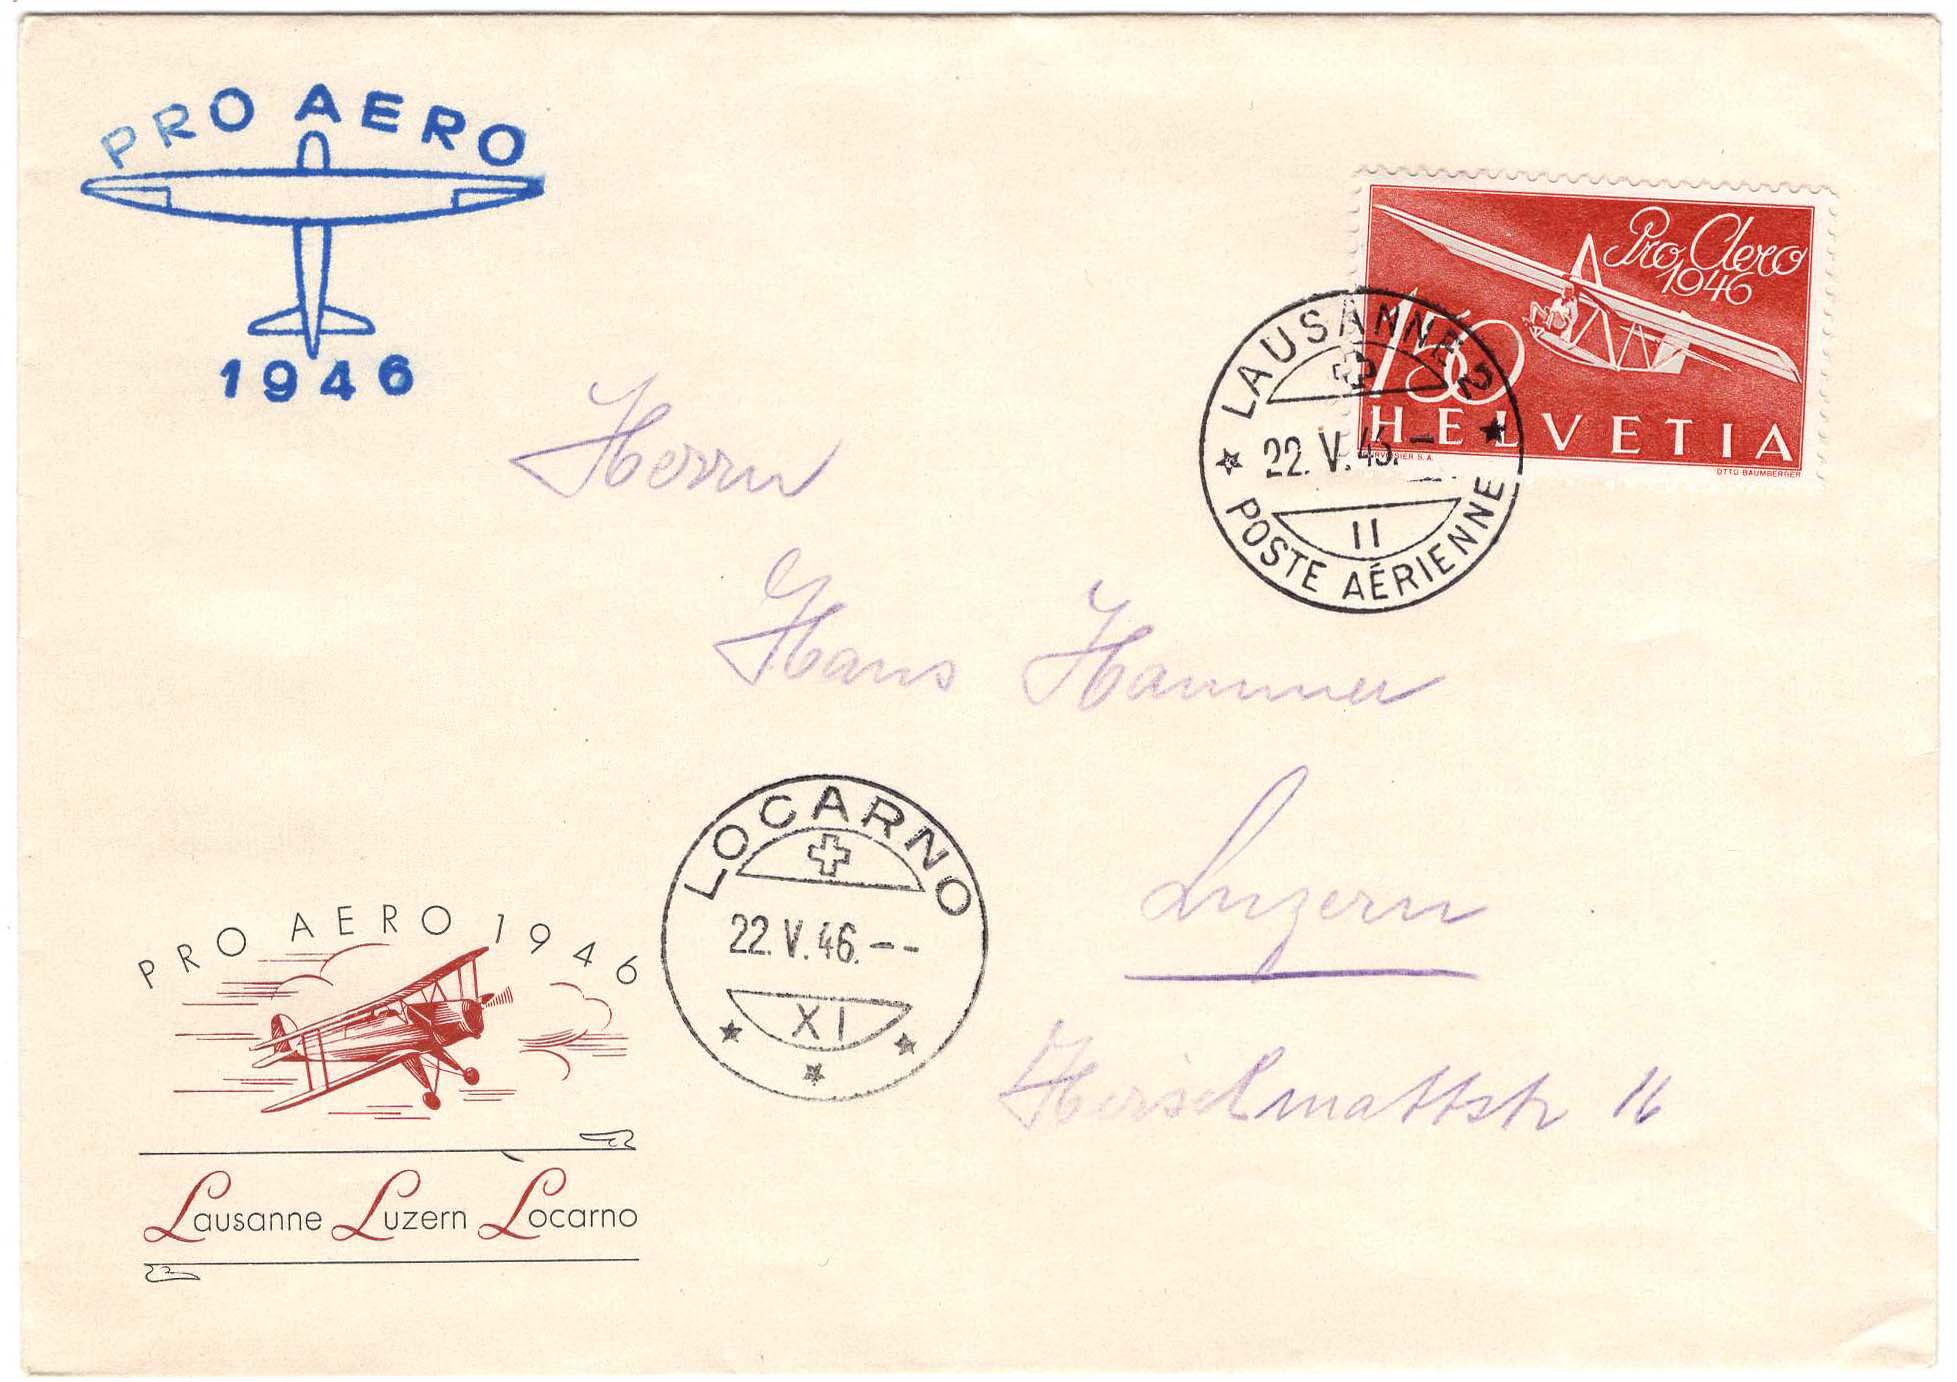 PRO AERO
1946
Pro Aero
1946
150
HELVETIA
COURVOISIER S.A.
OTTO BAUMBERGER
LAUSANNE 2
22. V. 46. –
II
POSTE AÉRIENNE
Herrn
Hans Hammer
LOCARNO
22. V. 46. – –
XI
Luzern
PRO AERO 1946
Lausanne Luzern Locarno
16